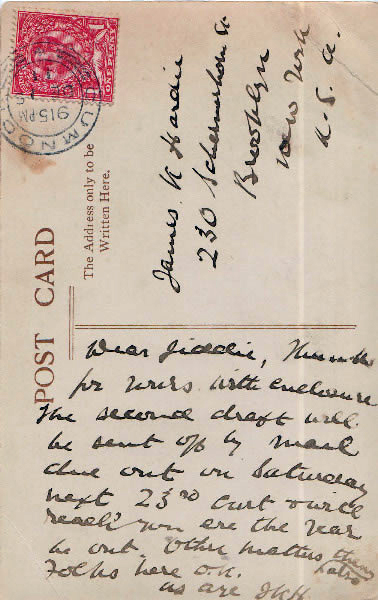 POST CARD
The Address only to be
Written Here.
CUMNOCK
915 PM
James K Hardie
230 Schermerhorn St
Brooklyn
New York
U. S. A.
Dear Jiddie,
for yours with enclosure
The second draft will
be sent off by mail
due out on Saturday
next 23rd curt & will
reach you ere the year
be out. Other matters
Folks here OK.
as are JKH.